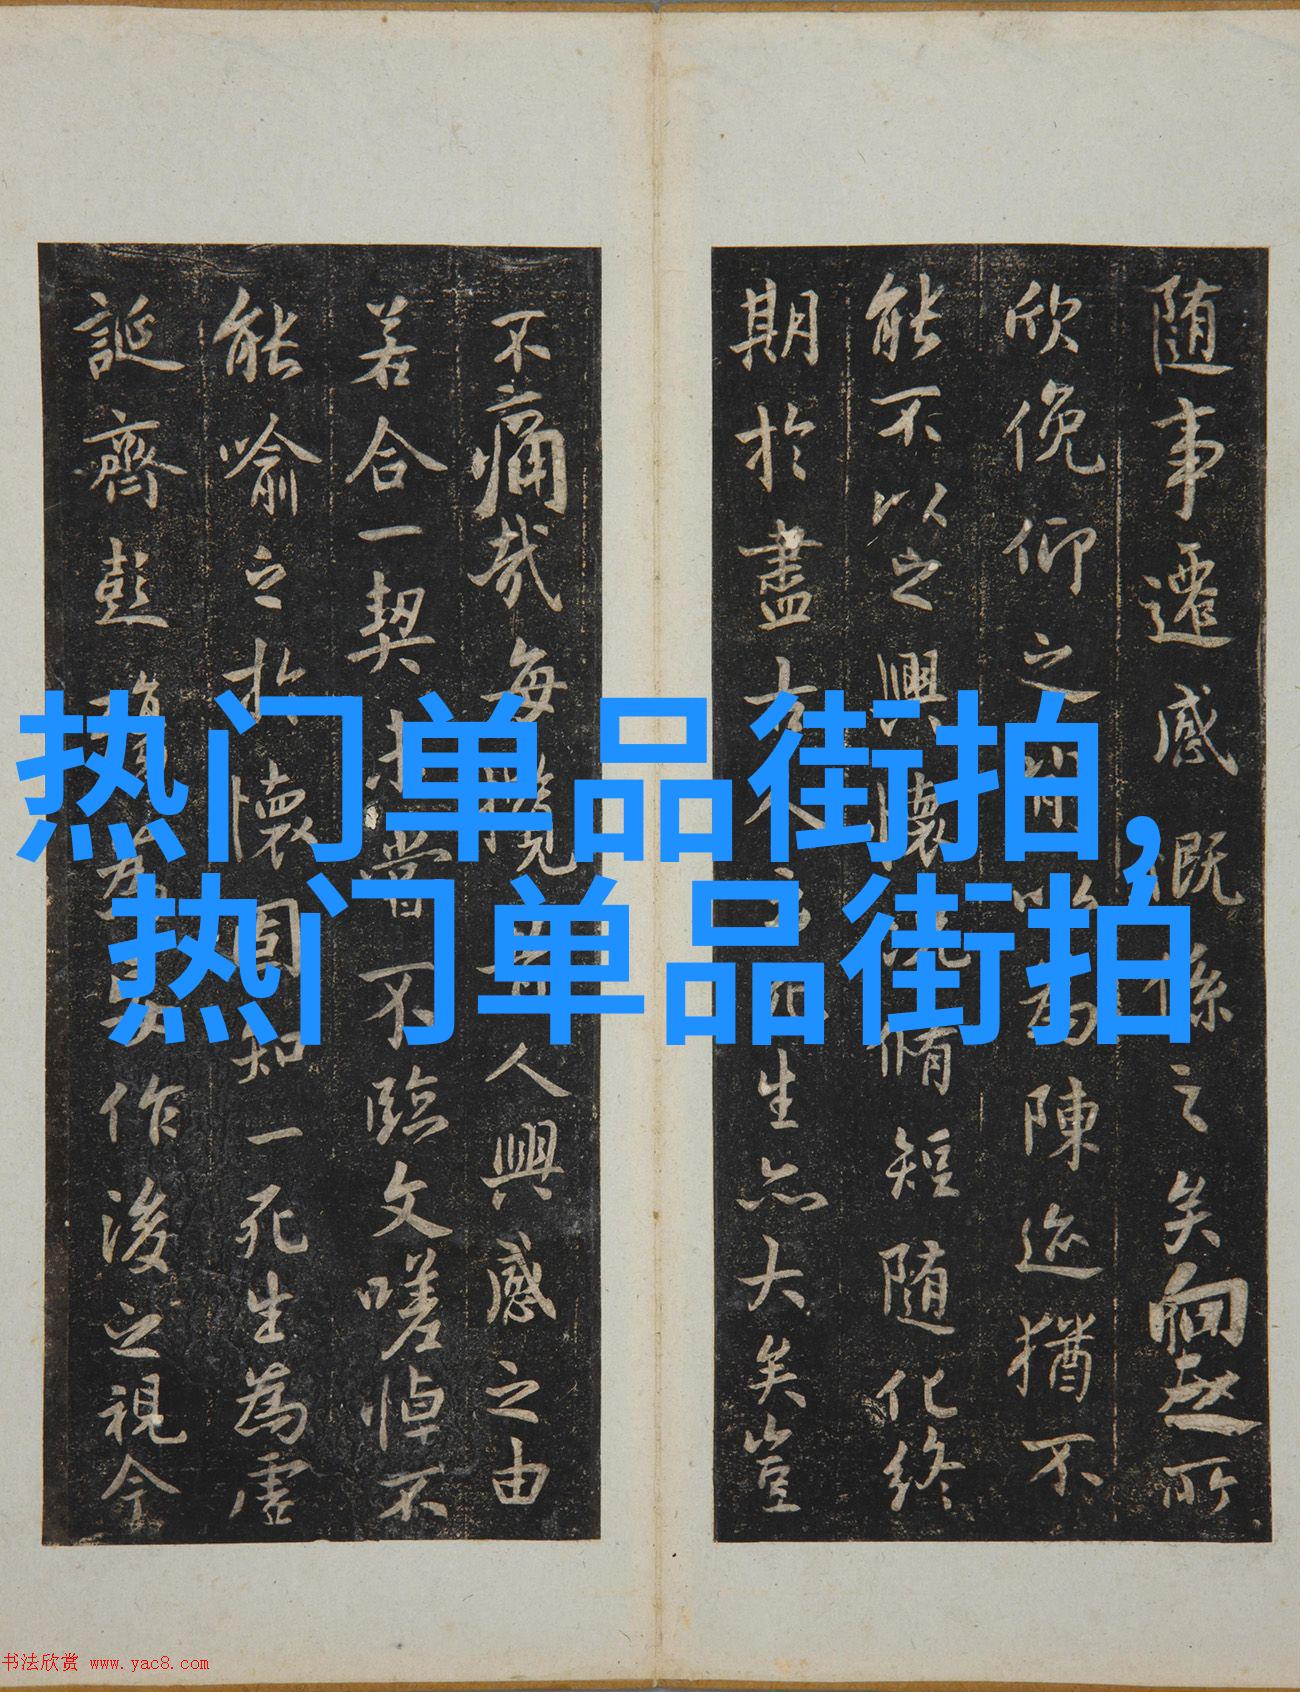 隨事遷感慨係之矣向之所
欣俛仰之間為陳迹猶不
能不以之興懷脩短隨化終
期於盡古人生亦大矣豈
不痛哉每攬人興感之由
若合一契未嘗不臨文嗟悼不
能喻之於懷固知一死生為虛
誕齊彭殤為作後之視今
热门单品街拍,
热门单品街拍
书法欣赏 www.yac8.com